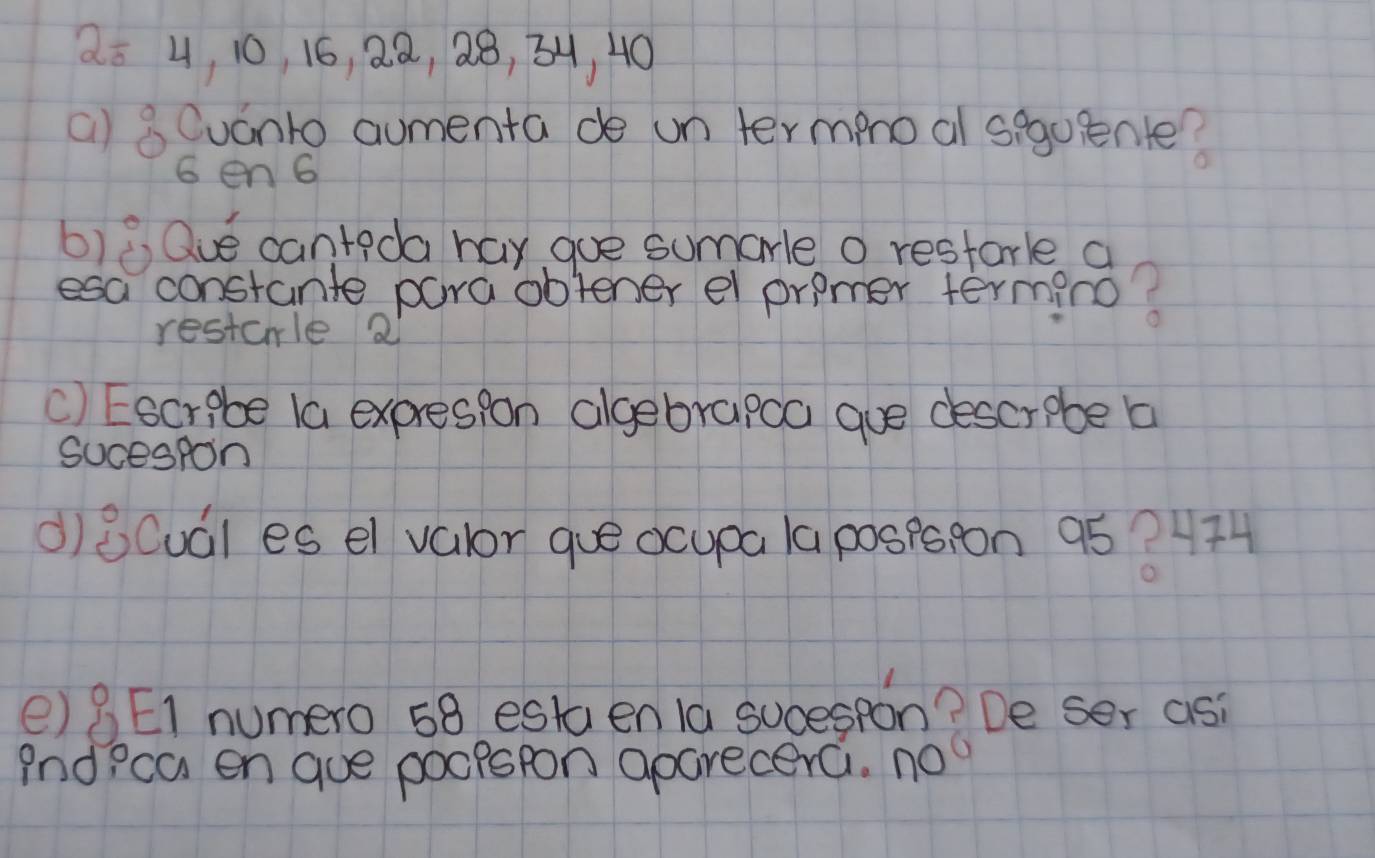 2= 4, 10, 16, 22, 28, 34, 40
a) ¿Cuánto aumenta de un termino al siguiente?
6 en 6
b) ¿Qué cantida hay que sumarle o restarle a
esa constante para obtener el primer termino?
restarle 2
c) Escribe la expresion algebraica que describe la
sucesion
d) ¿Cuál es el valor que ocupa la posision 95? 474
e) ¿El numero 58 esta en la sucesión? De ser asi
indica en que pocision aparecerá. no